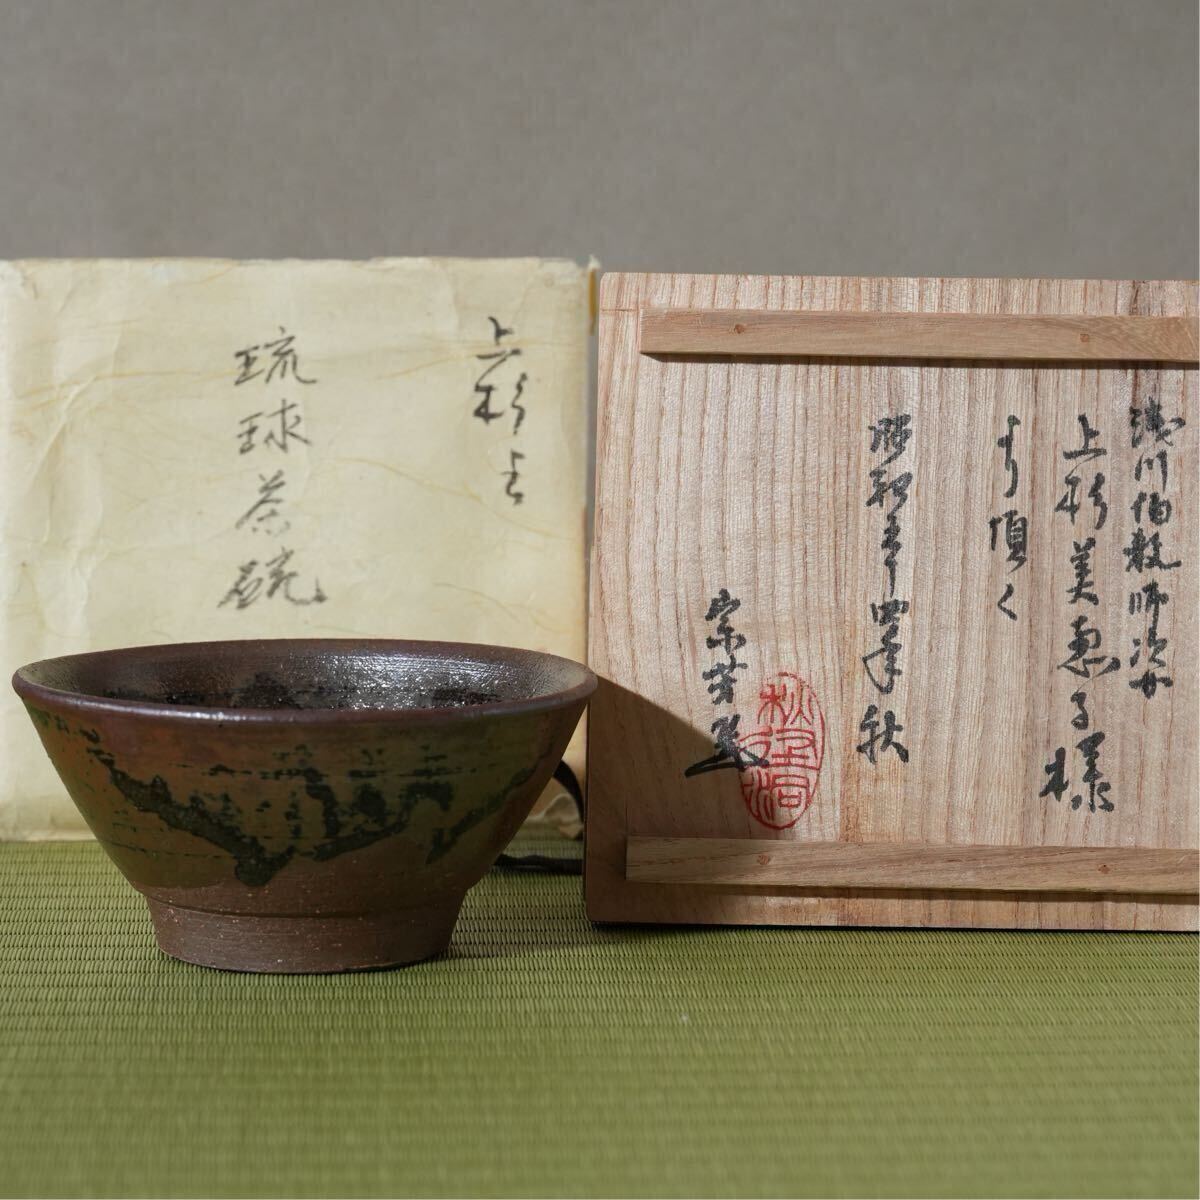 上杉
琉球茶碗
浅川伯教師次女
上杉美恵子様
より頂く
昭和五十四年秋
宗芳